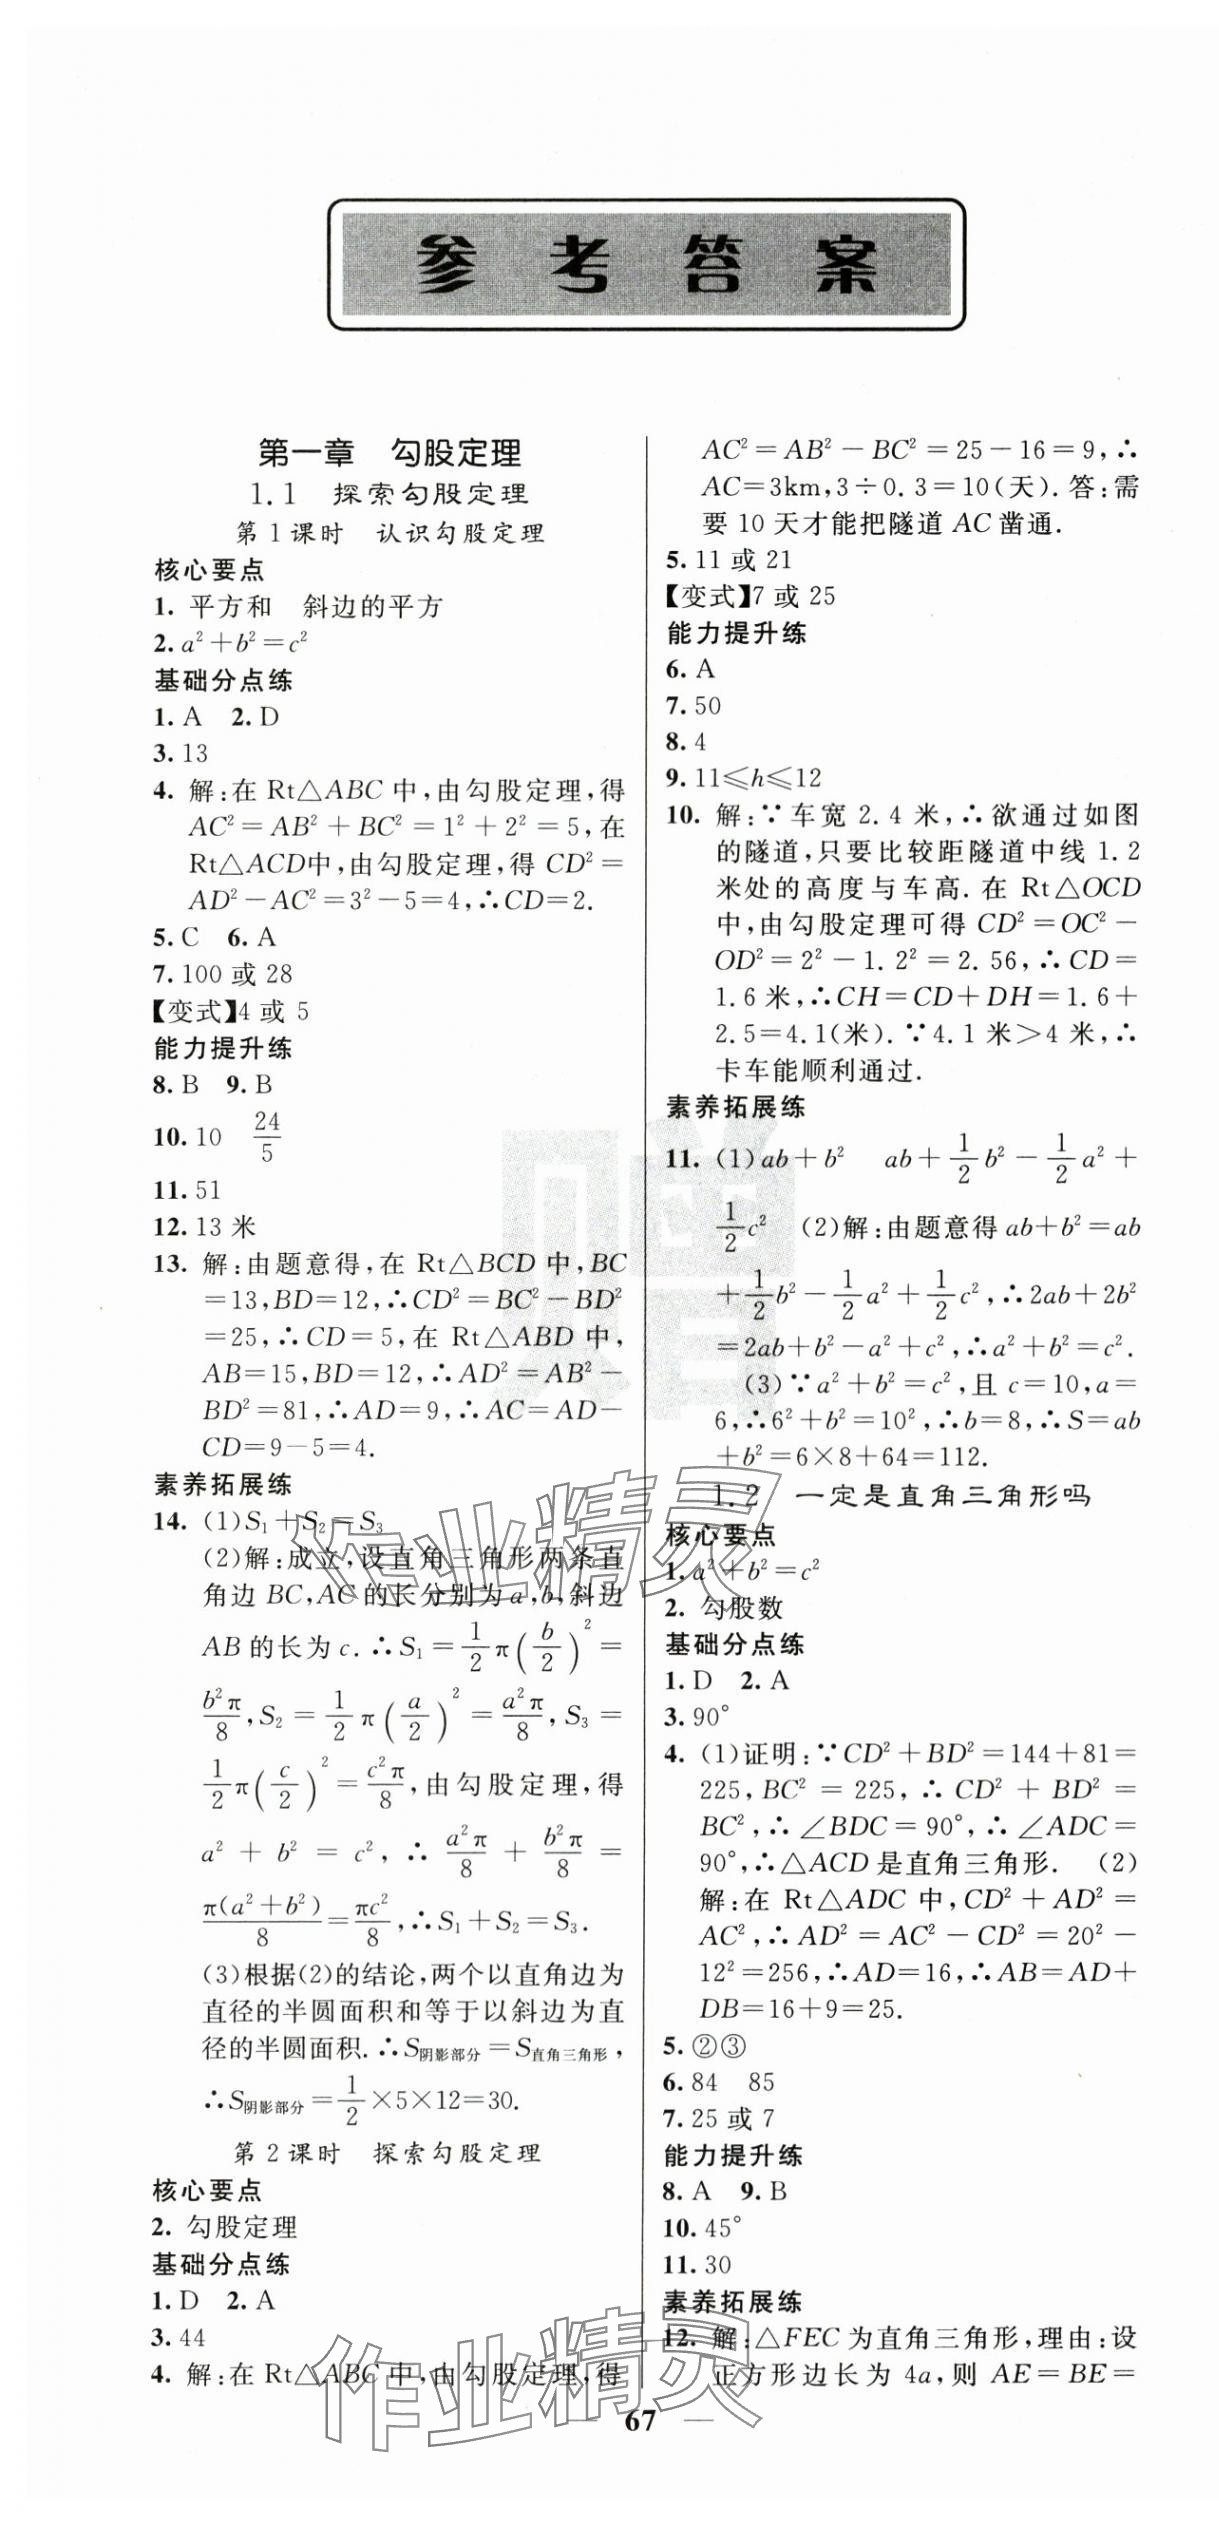 参考答案
第一章　勾股定理
1.1　探索勾股定理
第1课时　认识勾股定理
核心要点
1. 平方和　斜边的平方
2. a²+b²=c²
基础分点练
1. A　2. D
3. 13
4. 解:在 Rt△ABC 中,由勾股定理,得
AC²=AB²+BC²=1²+2²=5,在
Rt△ACD中,由勾股定理,得 CD²=
AD²-AC²=3²-5=4,∴CD=2.
5. C　6. A
7. 100 或 28
【变式】4 或 5
能力提升练
8. B　9. B
10. 10　24/5
11. 51
12. 13 米
13. 解:由题意得,在 Rt△BCD 中,BC
=13,BD=12,∴CD²=BC²-BD²
=25,∴CD=5,在 Rt△ABD 中,
AB=15,BD=12,∴AD²=AB²-
BD²=81,∴AD=9,∴AC=AD-
CD=9-5=4.
素养拓展练
14. (1)S₁+S₂=S₃
(2)解:成立,设直角三角形两条直
角边 BC,AC 的长分别为 a,b,斜边
AB 的长为 c. ∴S₁=1/2π(b/2)²=
b²π/8,S₂=1/2π(a/2)²=a²π/8,S₃=
1/2π(c/2)²=c²π/8,由勾股定理,得
a²+b²=c²,∴a²π/8+b²π/8=
π(a²+b²)/8=πc²/8,∴S₁+S₂=S₃.
(3)根据(2)的结论,两个以直角边为
直径的半圆面积和等于以斜边为直
径的半圆面积. ∴S阴影部分=S直角三角形,
∴S阴影部分=1/2×5×12=30.
第2课时　探索勾股定理
核心要点
2. 勾股定理
基础分点练
1. D　2. A
3. 44
4. 解:在 Rt△ABC 中,由勾股定理,得
AC²=AB²-BC²=25-16=9,∴
AC=3km,3÷0.3=10(天). 答:需
要 10 天才能把隧道 AC 凿通.
5. 11 或 21
【变式】7 或 25
能力提升练
6. A
7. 50
8. 4
9. 11≤h≤12
10. 解:∵车宽 2.4 米,∴欲通过如图
的隧道,只要比较距隧道中线 1.2
米处的高度与车高. 在 Rt△OCD
中,由勾股定理可得 CD²=OC²-
OD²=2²-1.2²=2.56,∴CD=
1.6 米,∴CH=CD+DH=1.6+
2.5=4.1(米). ∵4.1 米>4 米,∴
卡车能顺利通过.
素养拓展练
11. (1)ab+b²　ab+1/2b²-1/2a²+
1/2c²　(2)解:由题意得 ab+b²=ab
+1/2b²-1/2a²+1/2c²,∴2ab+2b²
=2ab+b²-a²+c²,∴a²+b²=c².
(3)∵a²+b²=c²,且 c=10,a=
6,∴6²+b²=10²,∴b=8,∴S=ab
+b²=6×8+64=112.
1.2　一定是直角三角形吗
核心要点
1. a²+b²=c²
2. 勾股数
基础分点练
1. D　2. A
3. 90°
4. (1)证明:∵CD²+BD²=144+81=
225,BC²=225,∴CD²+BD²=
BC²,∴∠BDC=90°,∴∠ADC=
90°,∴△ACD 是直角三角形. (2)
解:在 Rt△ADC 中,CD²+AD²=
AC²,∴AD²=AC²-CD²=20²-
12²=256,∴AD=16,∴AB=AD+
DB=16+9=25.
5. ②③
6. 84　85
7. 25 或 7
能力提升练
8. A　9. B
10. 45°
11. 30
素养拓展练
12. 解:△FEC 为直角三角形,理由:设
正方形边长为 4a,则 AE=BE=
— 67 —
赠
作业精灵
作业精灵